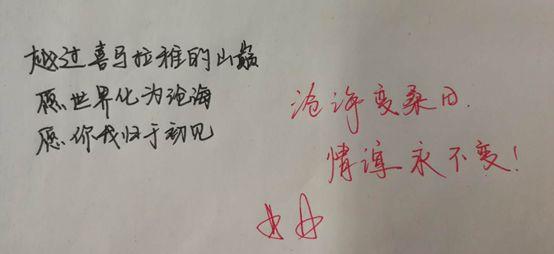 越过喜马拉雅的山巅
愿世界化为沧海
愿你我归于初见
沧海变桑田.
情谊永不变!